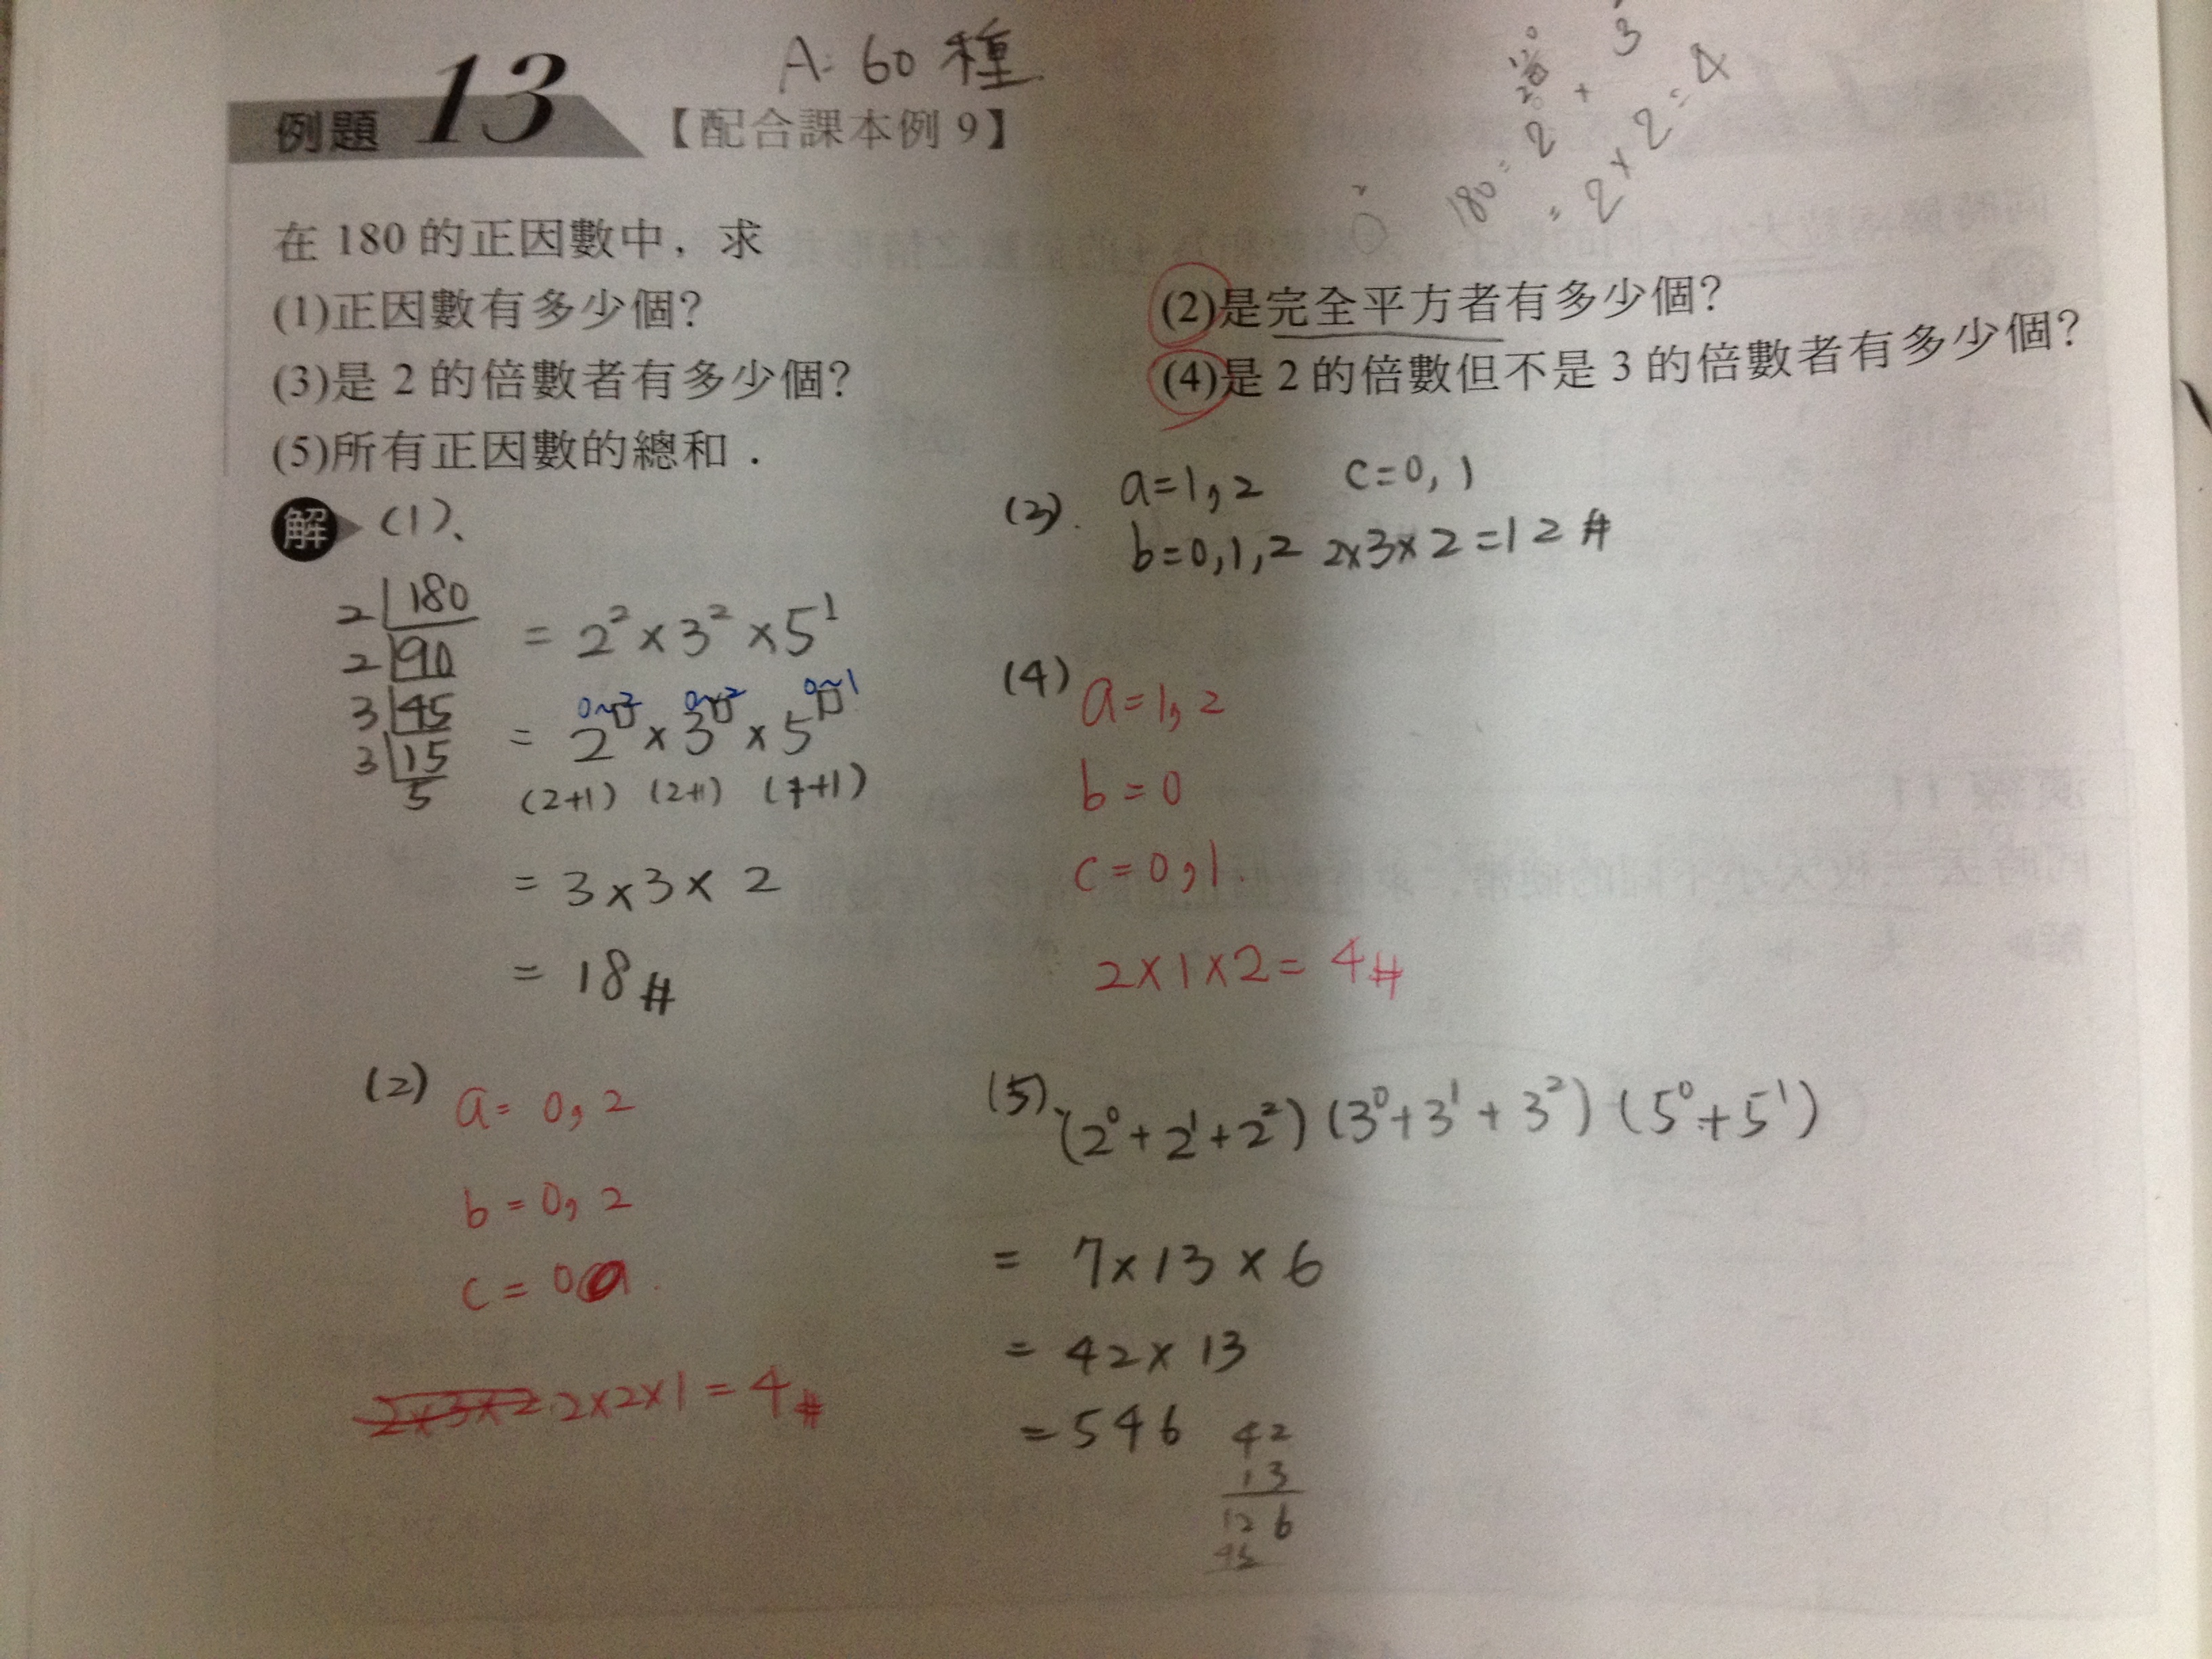 A: 60 種
例題 13 【配合課本例 9】
180 = 2
= 2 × 2 = 4
在 180 的正因數中，求
(1)正因數有多少個？
(2)是完全平方者有多少個？
(3)是 2 的倍數者有多少個？
(4)是 2 的倍數但不是 3 的倍數者有多少個？
(5)所有正因數的總和．
解 (1)、
2 180
2 90
3 45
3 15
5
= 2² × 3² × 5¹
0~2 0~2 0~1
= 2^□ × 3^□ × 5^□
(2+1) (2+1) (1+1)
= 3 × 3 × 2
= 18 #
(2)
a = 0, 2
b = 0, 2
c = 0
2×3×2 2×2×1 = 4 #
(3). a=1, 2 c=0, 1
b=0, 1, 2 2×3×2=12 #
(4) a=1, 2
b = 0
c = 0, 1.
2×1×2= 4 #
(5)、(2⁰+2¹+2²)(3⁰+3¹+3²)(5⁰+5¹)
= 7×13×6
= 42×13
= 546
42
13
126
42